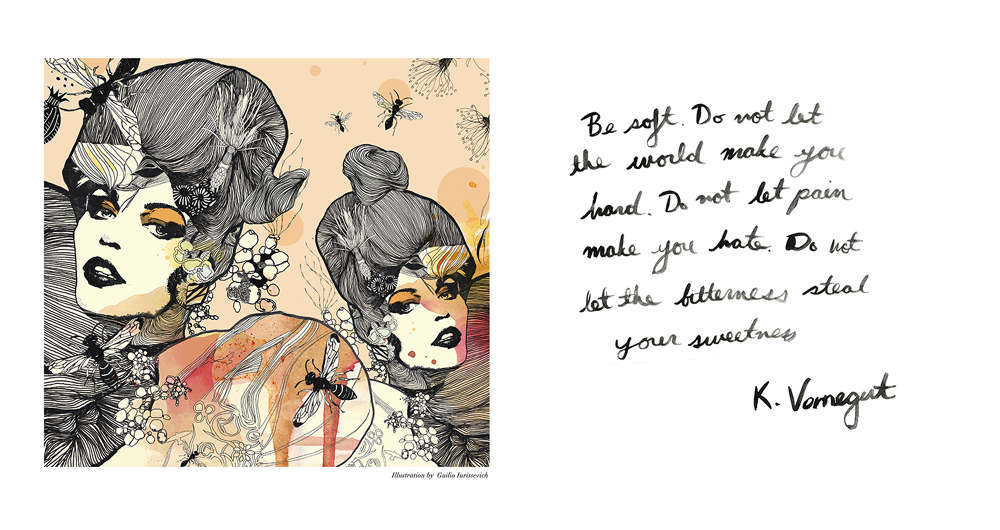 Be soft. Do not let
the world make you
hard. Do not let pain
make you hate. Do not
let the bitterness steal
your sweetness
K. Vonnegut
Illustration by Gailio Iurissevich